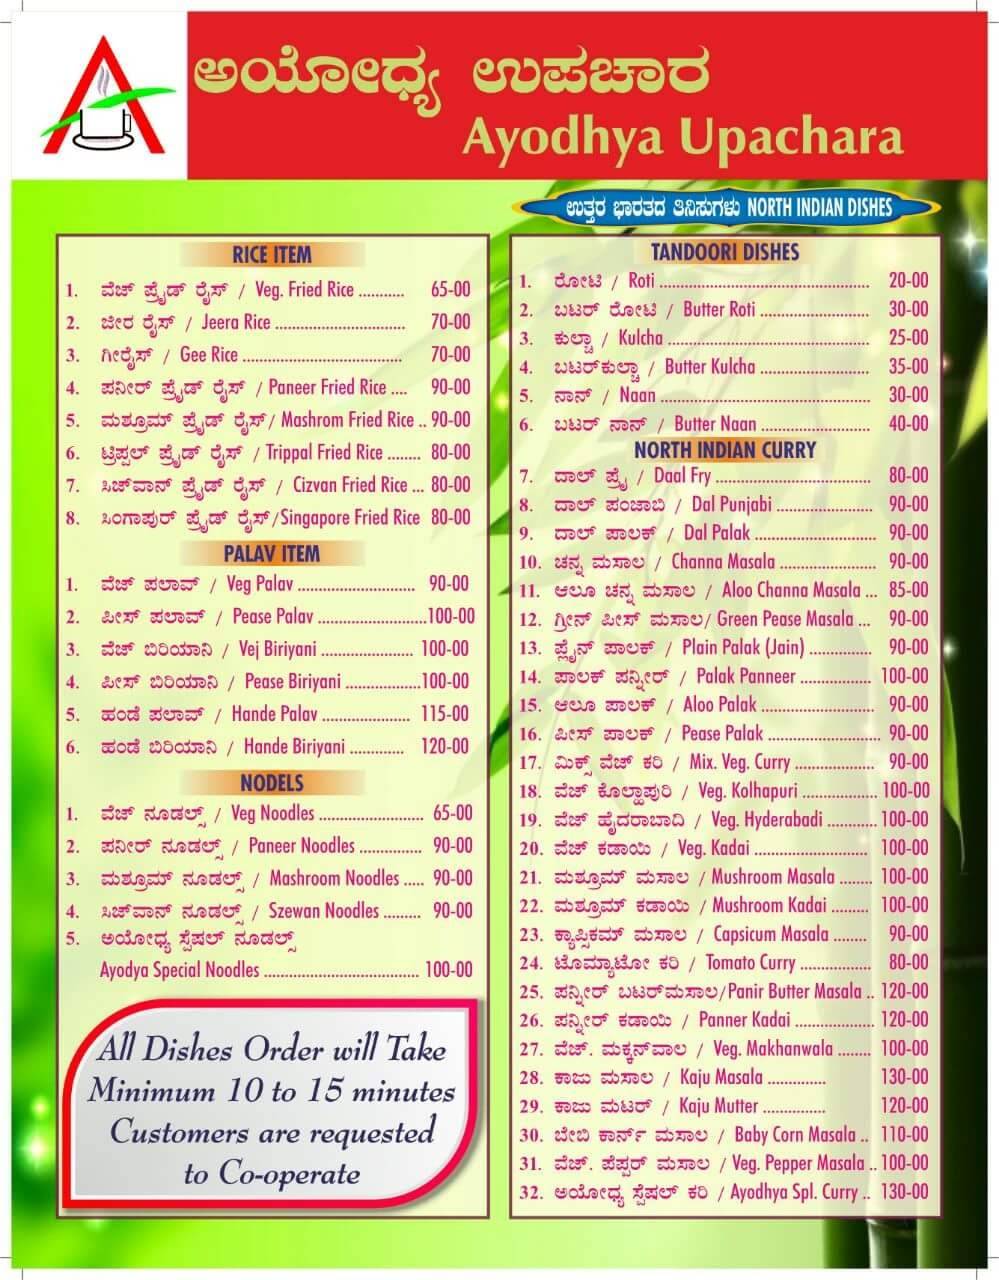 ಅಯೋಧ್ಯ ಉಪಚಾರ
Ayodhya Upachara
ಉತ್ತರ ಭಾರತದ ತಿನಿಸುಗಳು NORTH INDIAN DISHES
RICE ITEM
1. ವೆಜ್ ಪ್ರೈಡ್ ರೈಸ್ / Veg. Fried Rice ........... 65-00
2. ಜೀರ ರೈಸ್ / Jeera Rice ................................ 70-00
3. ಗೀರೈಸ್ / Gee Rice ....................................... 70-00
4. ಪನೀರ್ ಪ್ರೈಡ್ ರೈಸ್ / Paneer Fried Rice .... 90-00
5. ಮಶ್ರೂಮ್ ಪ್ರೈಡ್ ರೈಸ್/ Mashrom Fried Rice .. 90-00
6. ಟ್ರಿಪ್ಪಲ್ ಪ್ರೈಡ್ ರೈಸ್ / Trippal Fried Rice ........ 80-00
7. ಸಿಜ್‌ವಾನ್ ಪ್ರೈಡ್ ರೈಸ್ / Cizvan Fried Rice ... 80-00
8. ಸಿಂಗಾಪುರ್ ಪ್ರೈಡ್ ರೈಸ್/Singapore Fried Rice 80-00
PALAV ITEM
1. ವೆಜ್ ಪಲಾವ್ / Veg Palav ............................. 90-00
2. ಪೀಸ್ ಪಲಾವ್ / Pease Palav ...........................100-00
3. ವೆಜ್ ಬಿರಿಯಾನಿ / Vej Biriyani ...................... 100-00
4. ಪೀಸ್ ಬಿರಿಯಾನಿ / Pease Biriyani ...................100-00
5. ಹಂಡೆ ಪಲಾವ್ / Hande Palav ...................... 115-00
6. ಹಂಡೆ ಬಿರಿಯಾನಿ / Hande Biriyani ............. 120-00
NODELS
1. ವೆಜ್ ನೂಡಲ್ಸ್ / Veg Noodles .......................... 65-00
2. ಪನೀರ್ ನೂಡಲ್ಸ್ / Paneer Noodles ................ 90-00
3. ಮಶ್ರೂಮ್ ನೂಡಲ್ಸ್ / Mashroom Noodles ..... 90-00
4. ಸಿಜ್‌ವಾನ್ ನೂಡಲ್ಸ್ / Szewan Noodles ......... 90-00
5. ಅಯೋಧ್ಯ ಸ್ಪೆಷಲ್ ನೂಡಲ್ಸ್
Ayodya Special Noodles ...................................... 100-00
All Dishes Order will Take
Minimum 10 to 15 minutes
Customers are requested
to Co-operate
TANDOORI DISHES
1. ರೋಟಿ / Roti .................................................... 20-00
2. ಬಟರ್ ರೋಟಿ / Butter Roti ........................... 30-00
3. ಕುಲ್ಚಾ / Kulcha .................................................. 25-00
4. ಬಟರ್‌ಕುಲ್ಚಾ / Butter Kulcha ........................... 35-00
5. ನಾನ್ / Naan ...................................................... 30-00
6. ಬಟರ್ ನಾನ್ / Butter Naan ........................... 40-00
NORTH INDIAN CURRY
7. ದಾಲ್ ಪ್ರೈ / Daal Fry ....................................... 80-00
8. ದಾಲ್ ಪಂಜಾಬಿ / Dal Punjabi ........................ 90-00
9. ದಾಲ್ ಪಾಲಕ್ / Dal Palak .............................. 90-00
10. ಚನ್ನ ಮಸಾಲ / Channa Masala ........................ 90-00
11. ಆಲೂ ಚನ್ನ ಮಸಾಲ / Aloo Channa Masala ... 85-00
12. ಗ್ರೀನ್ ಪೀಸ್ ಮಸಾಲ/ Green Pease Masala ... 90-00
13. ಪ್ಲೈನ್ ಪಾಲಕ್ / Plain Palak (Jain) ............... 90-00
14. ಪಾಲಕ್ ಪನ್ನೀರ್ / Palak Panneer .................. 100-00
15. ಆಲೂ ಪಾಲಕ್ / Aloo Palak ............................ 90-00
16. ಪೀಸ್ ಪಾಲಕ್ / Pease Palak ............................ 90-00
17. ಮಿಕ್ಸ್ ವೆಜ್ ಕರಿ / Mix. Veg. Curry .................... 90-00
18. ವೆಜ್ ಕೊಲ್ಹಾಪುರಿ / Veg. Kolhapuri ................... 100-00
19. ವೆಜ್ ಹೈದರಾಬಾದಿ / Veg. Hyderabadi ............ 100-00
20. ವೆಜ್ ಕಡಾಯಿ / Veg. Kadai ............................ 100-00
21. ಮಶ್ರೂಮ್ ಮಸಾಲ / Mushroom Masala ........ 100-00
22. ಮಶ್ರೂಮ್ ಕಡಾಯಿ / Mushroom Kadai ......... 100-00
23. ಕ್ಯಾಪ್ಸಿಕಮ್ ಮಸಾಲ / Capsicum Masala ........ 90-00
24. ಟೊಮ್ಯಾಟೋ ಕರಿ / Tomato Curry .................. 80-00
25. ಪನ್ನೀರ್ ಬಟರ್‌ಮಸಾಲ/Panir Butter Masala .. 120-00
26. ಪನ್ನೀರ್ ಕಡಾಯಿ / Panner Kadai .................... 120-00
27. ವೆಜ್. ಮಕ್ಕನ್‌ವಾಲ / Veg. Makhanwala ........ 100-00
28. ಕಾಜು ಮಸಾಲ / Kaju Masala .............. 130-00
29. ಕಾಜು ಮಟರ್ / Kaju Mutter ............... 120-00
30. ಬೇಬಿ ಕಾರ್ನ್ ಮಸಾಲ / Baby Corn Masala .. 110-00
31. ವೆಜ್. ಪೆಪ್ಪರ್ ಮಸಾಲ / Veg. Pepper Masala .. 100-00
32. ಅಯೋಧ್ಯ ಸ್ಪೆಷಲ್ ಕರಿ / Ayodhya Spl. Curry .. 130-00